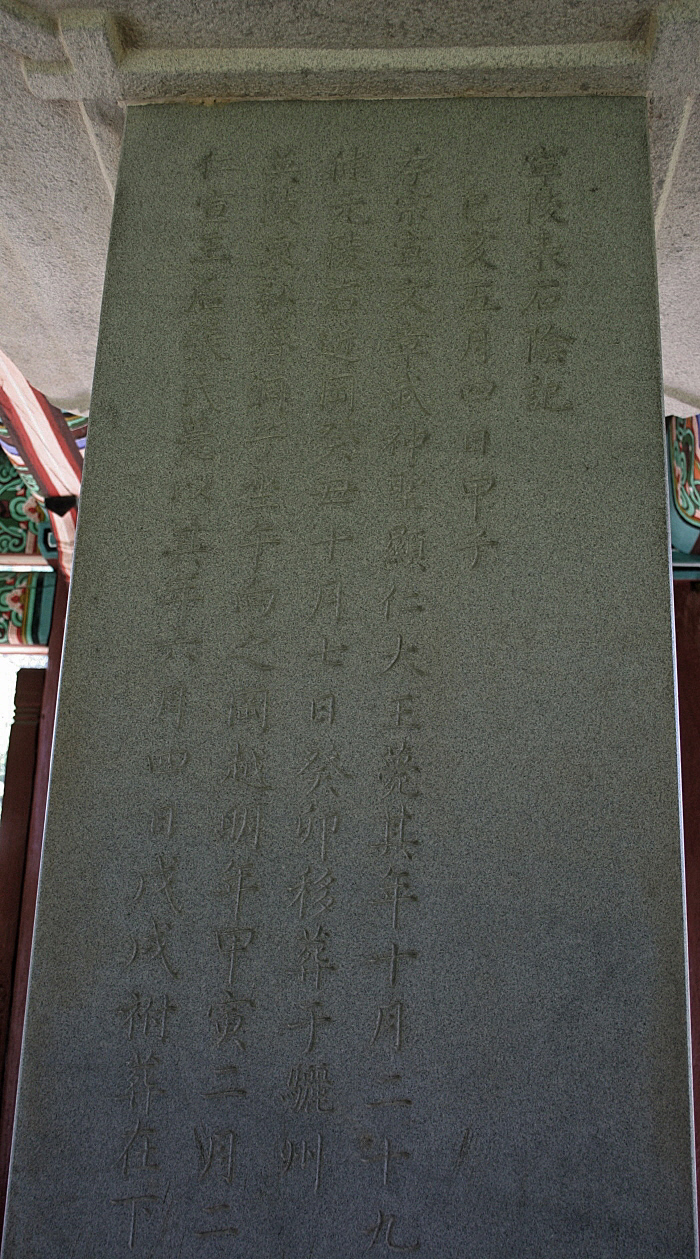 寧陵表石陰記
己亥五月四日甲子
孝宗宣文章武神聖顯仁大王薨其年十月二十九
健元陵右岡癸丑十月七日癸卯移葬于驪州
英陵東弘濟洞子坐午向之岡越明年甲寅二月二
仁宣王后張氏薨以年六月四日戊戌祔葬在下